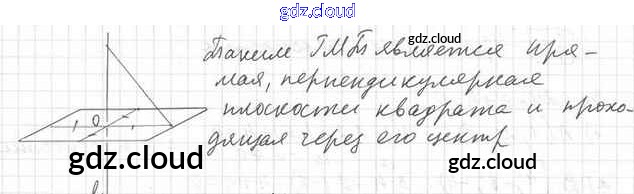 gdz.cloud
gdz.cloud
Таким ГМТ является пря-
мая, перпендикулярная
плоскости квадрата и прохо-
дящая через его центр
O
gdz.cloud
gdz.cloud